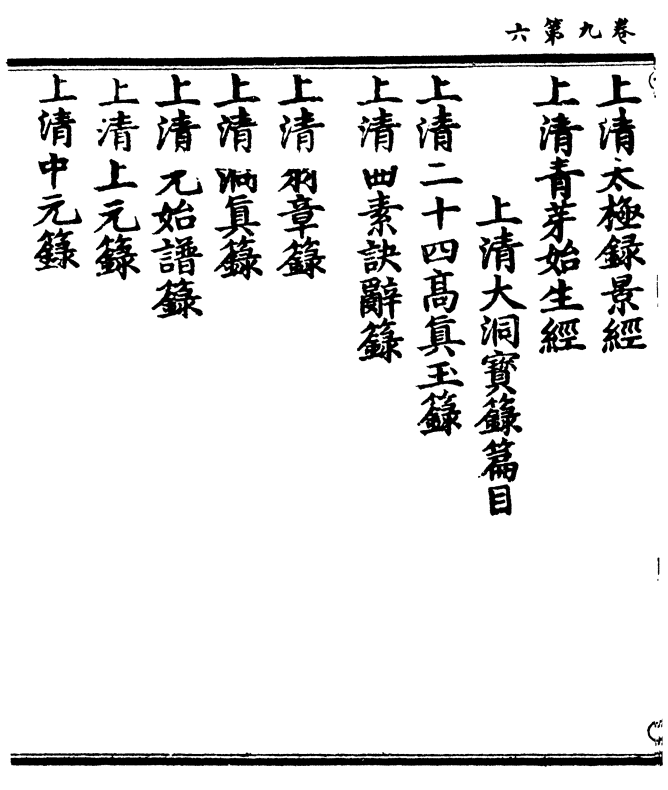 卷九第六
上清太極録景經
上清青芽始生經
上清大洞寳籙篇目
上清二十四髙眞玉籙
上清四素訣辭籙
上清羽章籙
上清洞眞籙
上清元始譜籙
上清上元籙
上清中元籙